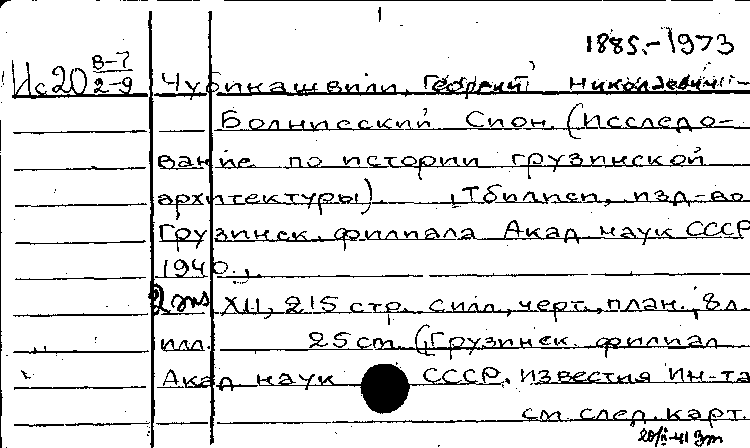 1885.-1973
Ис20 8-7/2-9 Чубинашвили, Георгий Николаевич-
Болнисский Сион. (Исследо-
вание по истории грузинской
архитектуры). [Тбилиси, изд-во
Грузинск. филиала Акад. наук СССР
1940.]
2 экз XII, 215 стр. с илл., черт., план., 8 л.
илл. 25 cm. ([Грузинск. филиал
Акад. наук СССР. Известия Ин-та
см. след. карт.